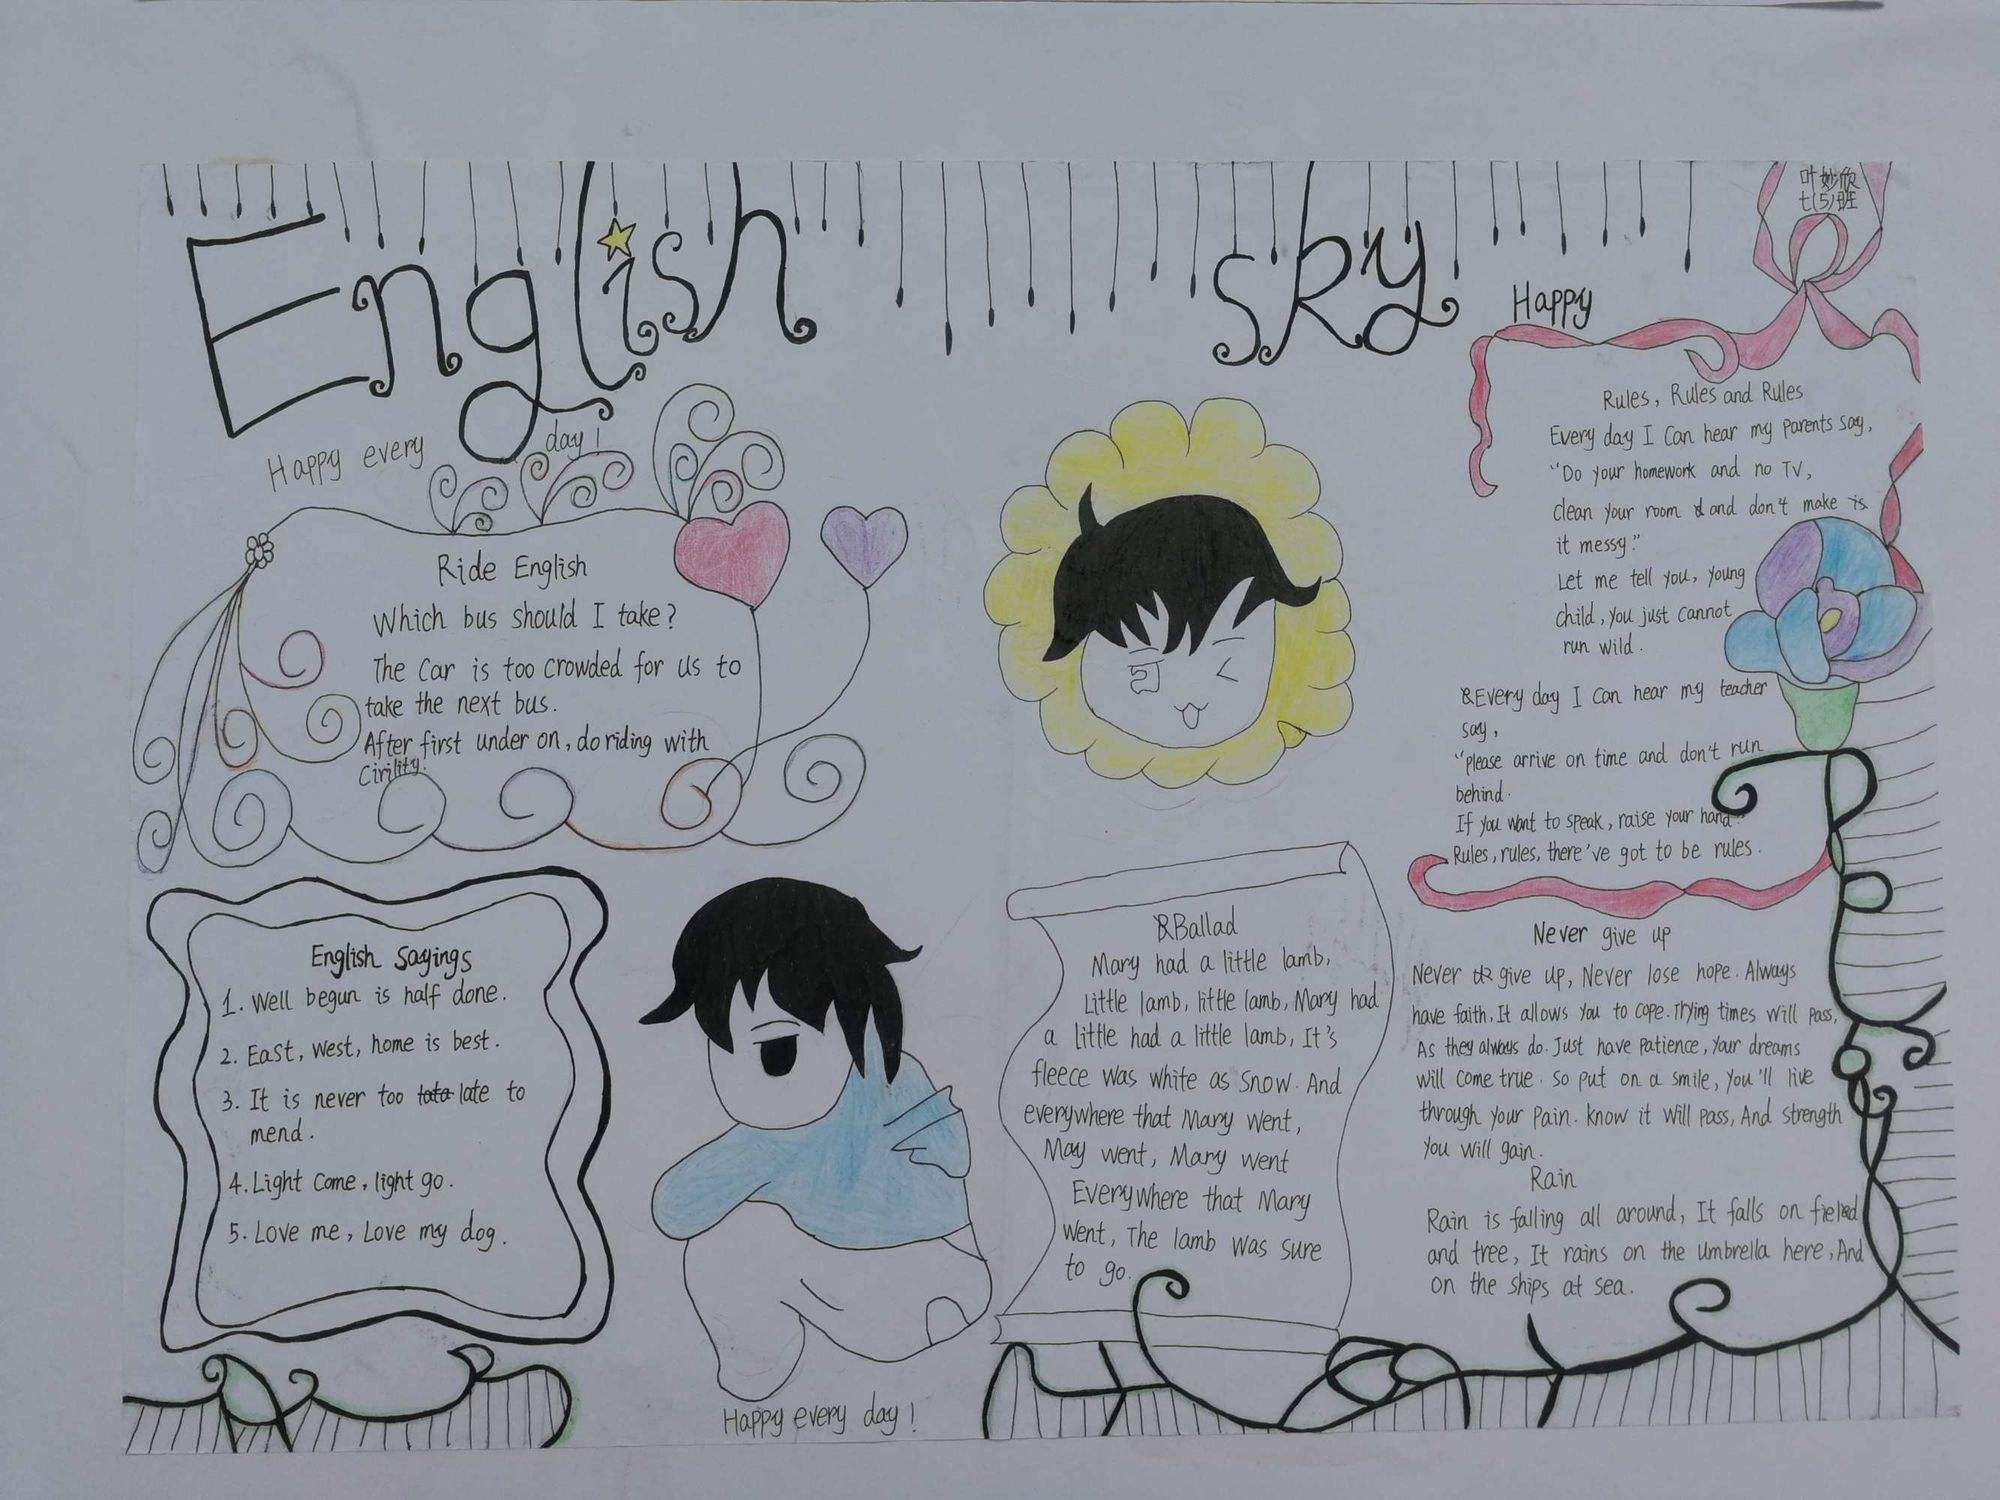 English sky
叶妙欣
七(5)班
Happy every day!
Happy
Ride English
Which bus should I take?
The Car is too crowded for us to
take the next bus.
After first under on, do riding with
Cirility!
English Sayings
1. Well begun is half done.
2. East, west, home is best.
3. It is never too late to
mend.
4. Light come, light go.
5. Love me, Love my dog.
Happy every day!
Ballad
Mary had a little lamb,
Little lamb, little lamb, Mary had
a little had a little lamb, It's
fleece was white as snow. And
everywhere that Mary went,
May went, Mary went
Everywhere that Mary
went, The lamb was sure
to go.
Rules, Rules and Rules
Every day I Can hear my parents say,
"Do your homework and no TV,
clean your room and don't make
it messy."
Let me tell you, young
child, you just cannot
run wild.
Every day I Can hear my teacher
say,
"please arrive on time and don't run
behind.
If you want to speak, raise your hand."
Rules, rules, there've got to be rules.
Never give up
Never give up, Never lose hope. Always
have faith, It allows you to cope. Trying times will pass,
As they always do. Just have patience, Your dreams
will come true. So put on a smile, You'll live
through your pain. know it will pass, And strength
you will gain.
Rain
Rain is falling all around, It falls on field
and tree, It rains on the umbrella here, And
on the ships at sea.